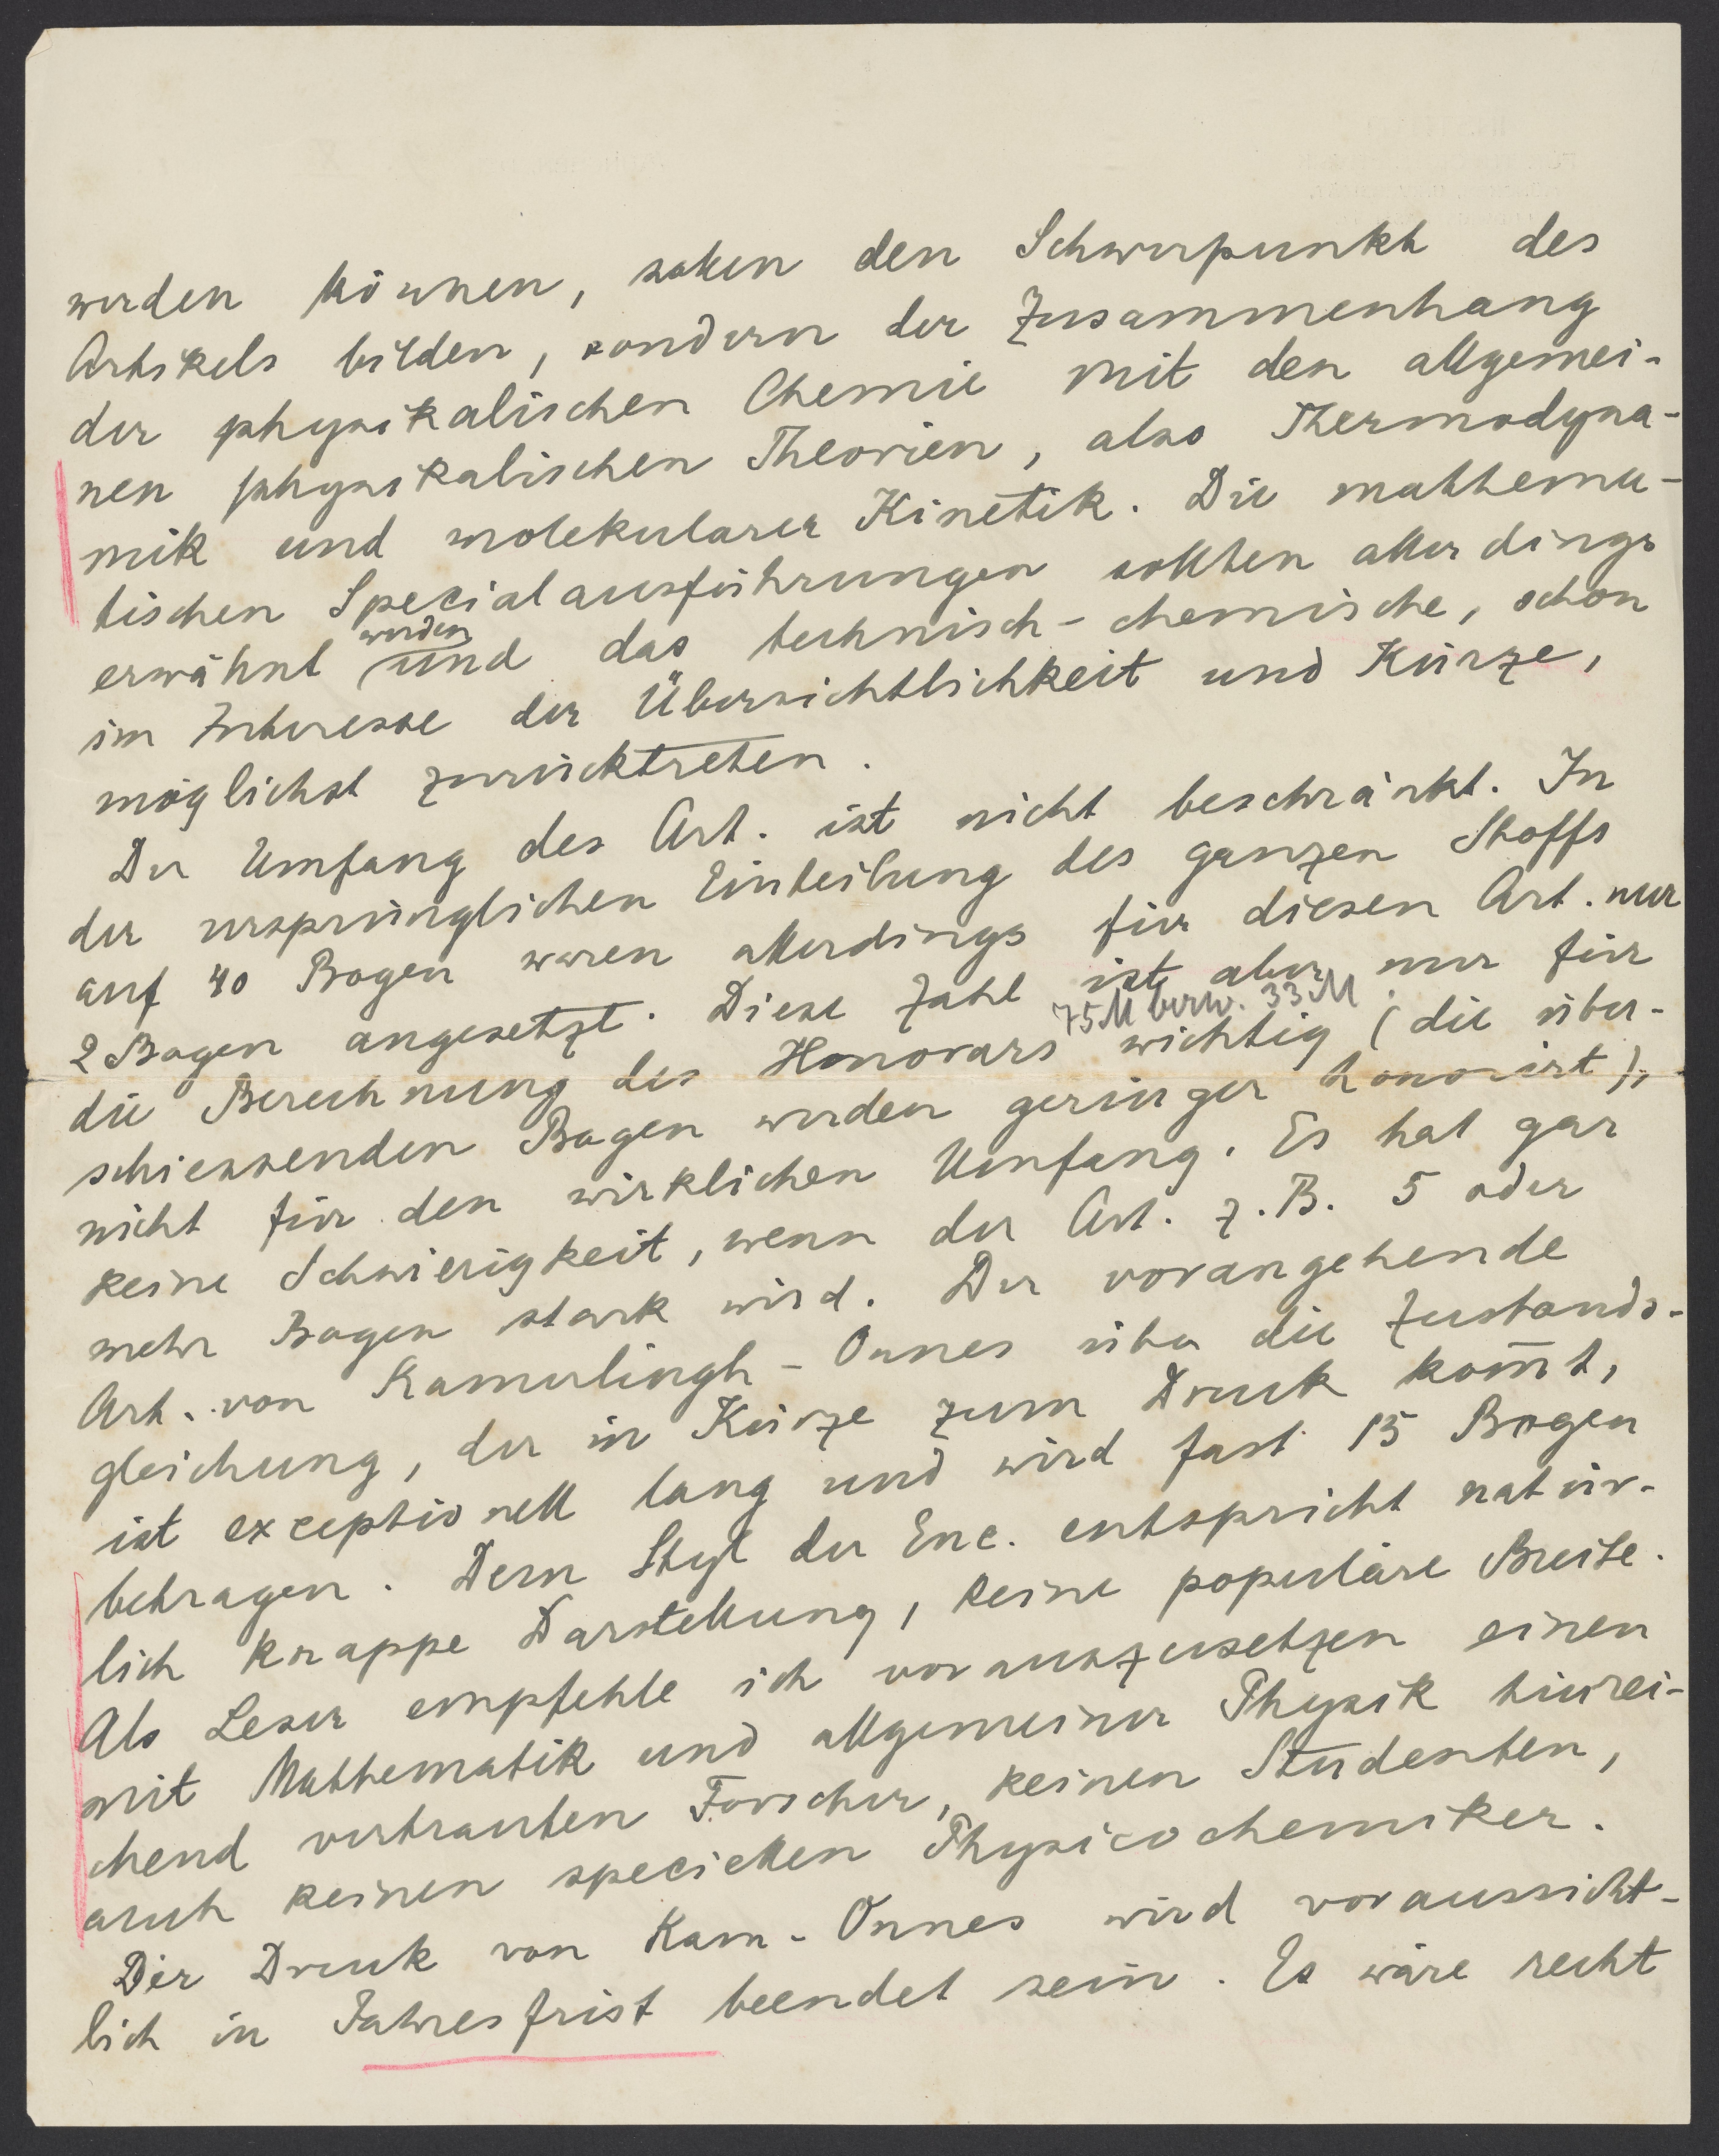 werden können, sollen den Schwerpunkt des
Artikels bilden, sondern der Zusammenhang
der physikalischen Chemie mit den allgemei-
nen physikalischen Theorien, also Thermodyna-
mik und molekularer Kinetik. Die mathema-
tischen Specialausführungen sollten allerdings
erwähnt werden und das technisch-chemische, schon
im Interesse der Übersichtlichkeit und Kürze,
möglichst zurücktreten.
Der Umfang des Art. ist nicht beschränkt. In
der ursprünglichen Einteilung des ganzen Stoffs
auf 40 Bogen waren allerdings für diesen Art. nur
2 Bogen angesetzt. Diese Zahl ist aber nur für
75 M bezw. 33 M
die Berechnung des Honorars wichtig (die über-
schiessenden Bogen werden geringer honorirt),
nicht für den wirklichen Umfang. Es hat gar
keine Schwierigkeit, wenn der Art. z.B. 5 oder
mehr Bogen stark wird. Der vorangehende
Art. von Kamerlingh-Onnes über die Zustands-
gleichung, der in Kürze zum Druck kom̄t,
ist exceptionell lang und wird fast 15 Bogen
betragen. Dem Styl der Enc. entspricht natür-
lich knappe Darstellung, keine populäre Breite.
Als Leser empfehle ich vorauszusetzen einen
mit Mathematik und allgemeiner Physik hinrei-
chend vertrauten Forscher, keinen Studenten,
auch keinen speciellen Physicochemiker.
Der Druck von Kam.-Onnes wird voraussicht-
lich in Jahresfrist beendet sein. Es wäre recht